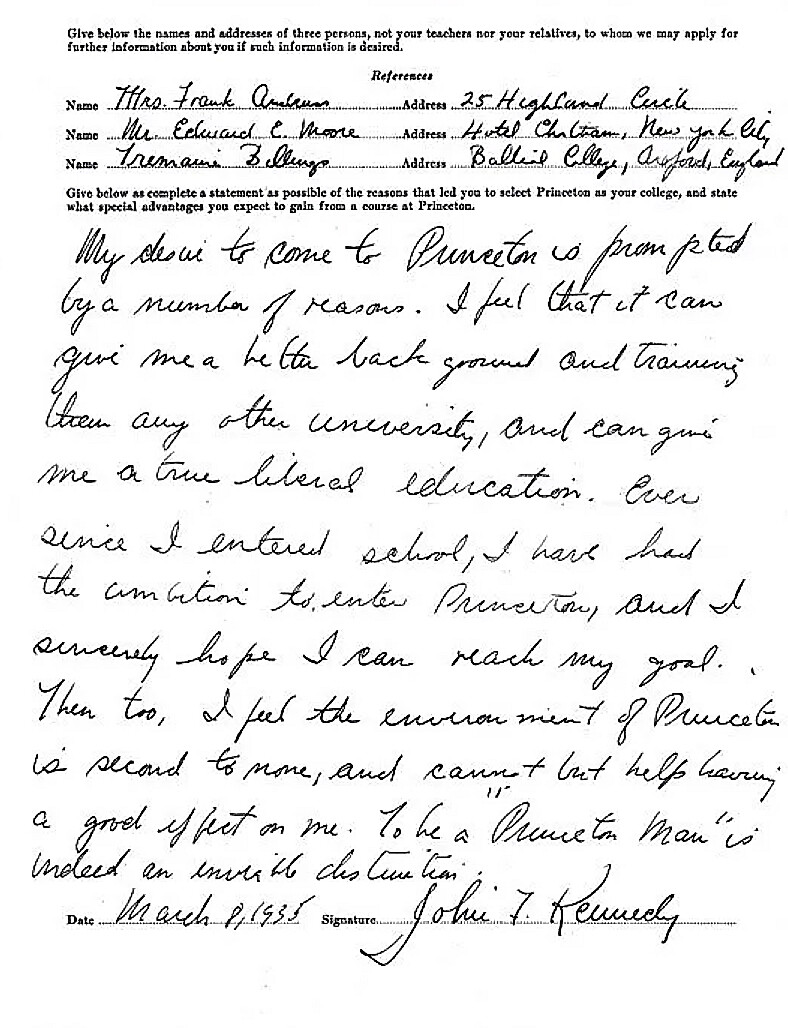 Give below the names and addresses of three persons, not your teachers nor your relatives, to whom we may apply for
further information about you if such information is desired.
References
Name Mrs. Frank Andrews Address 25 Highland Circle
Name Mr. Edward E. Moore Address Hotel Chatham, New York City
Name Tremaine Billings Address Balliol College, Oxford, England
Give below as complete a statement as possible of the reasons that led you to select Princeton as your college, and state
what special advantages you expect to gain from a course at Princeton.
My desire to come to Princeton is prompted
by a number of reasons. I feel that it can
give me a better back ground and training
than any other university, and can give
me a true liberal education. Ever
since I entered school, I have had
the ambition to enter Princeton, and I
sincerely hope I can reach my goal.
Then too, I feel the environment of Princeton
is second to none, and cannot but help having
a good effect on me. To be a "Princeton Man" is
indeed an enviable distinction.
Date March 8, 1935 Signature John F. Kennedy